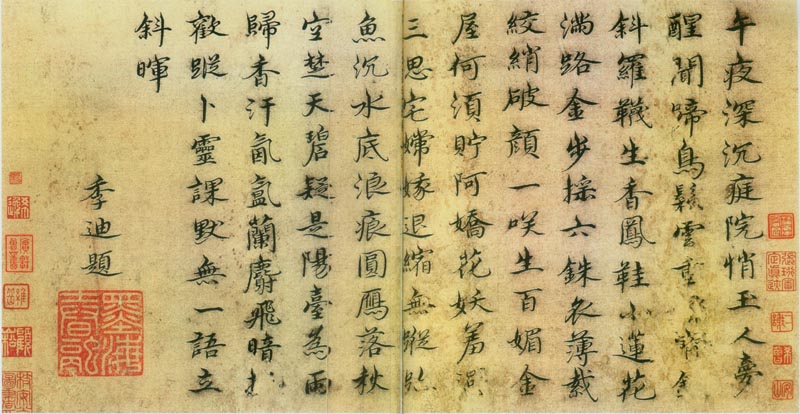 午夜深沉庭院悄玉人夢
醒聞蹄鳥鬆雲重
斜羅韈生香鳳鞋小蓮花
滿路金步採六銖衣薄裁
絞綃破顏一咲生百媚金
屋何須貯阿嬌花妖羞
三思宅嫦娥退縮無蹤
魚沉水底浪痕圓鴈落秋
空楚天碧疑是陽臺為雨
歸香汗氤氳蘭麝飛暗
歡蹤卜靈課默無一語立
斜暉
季迪題